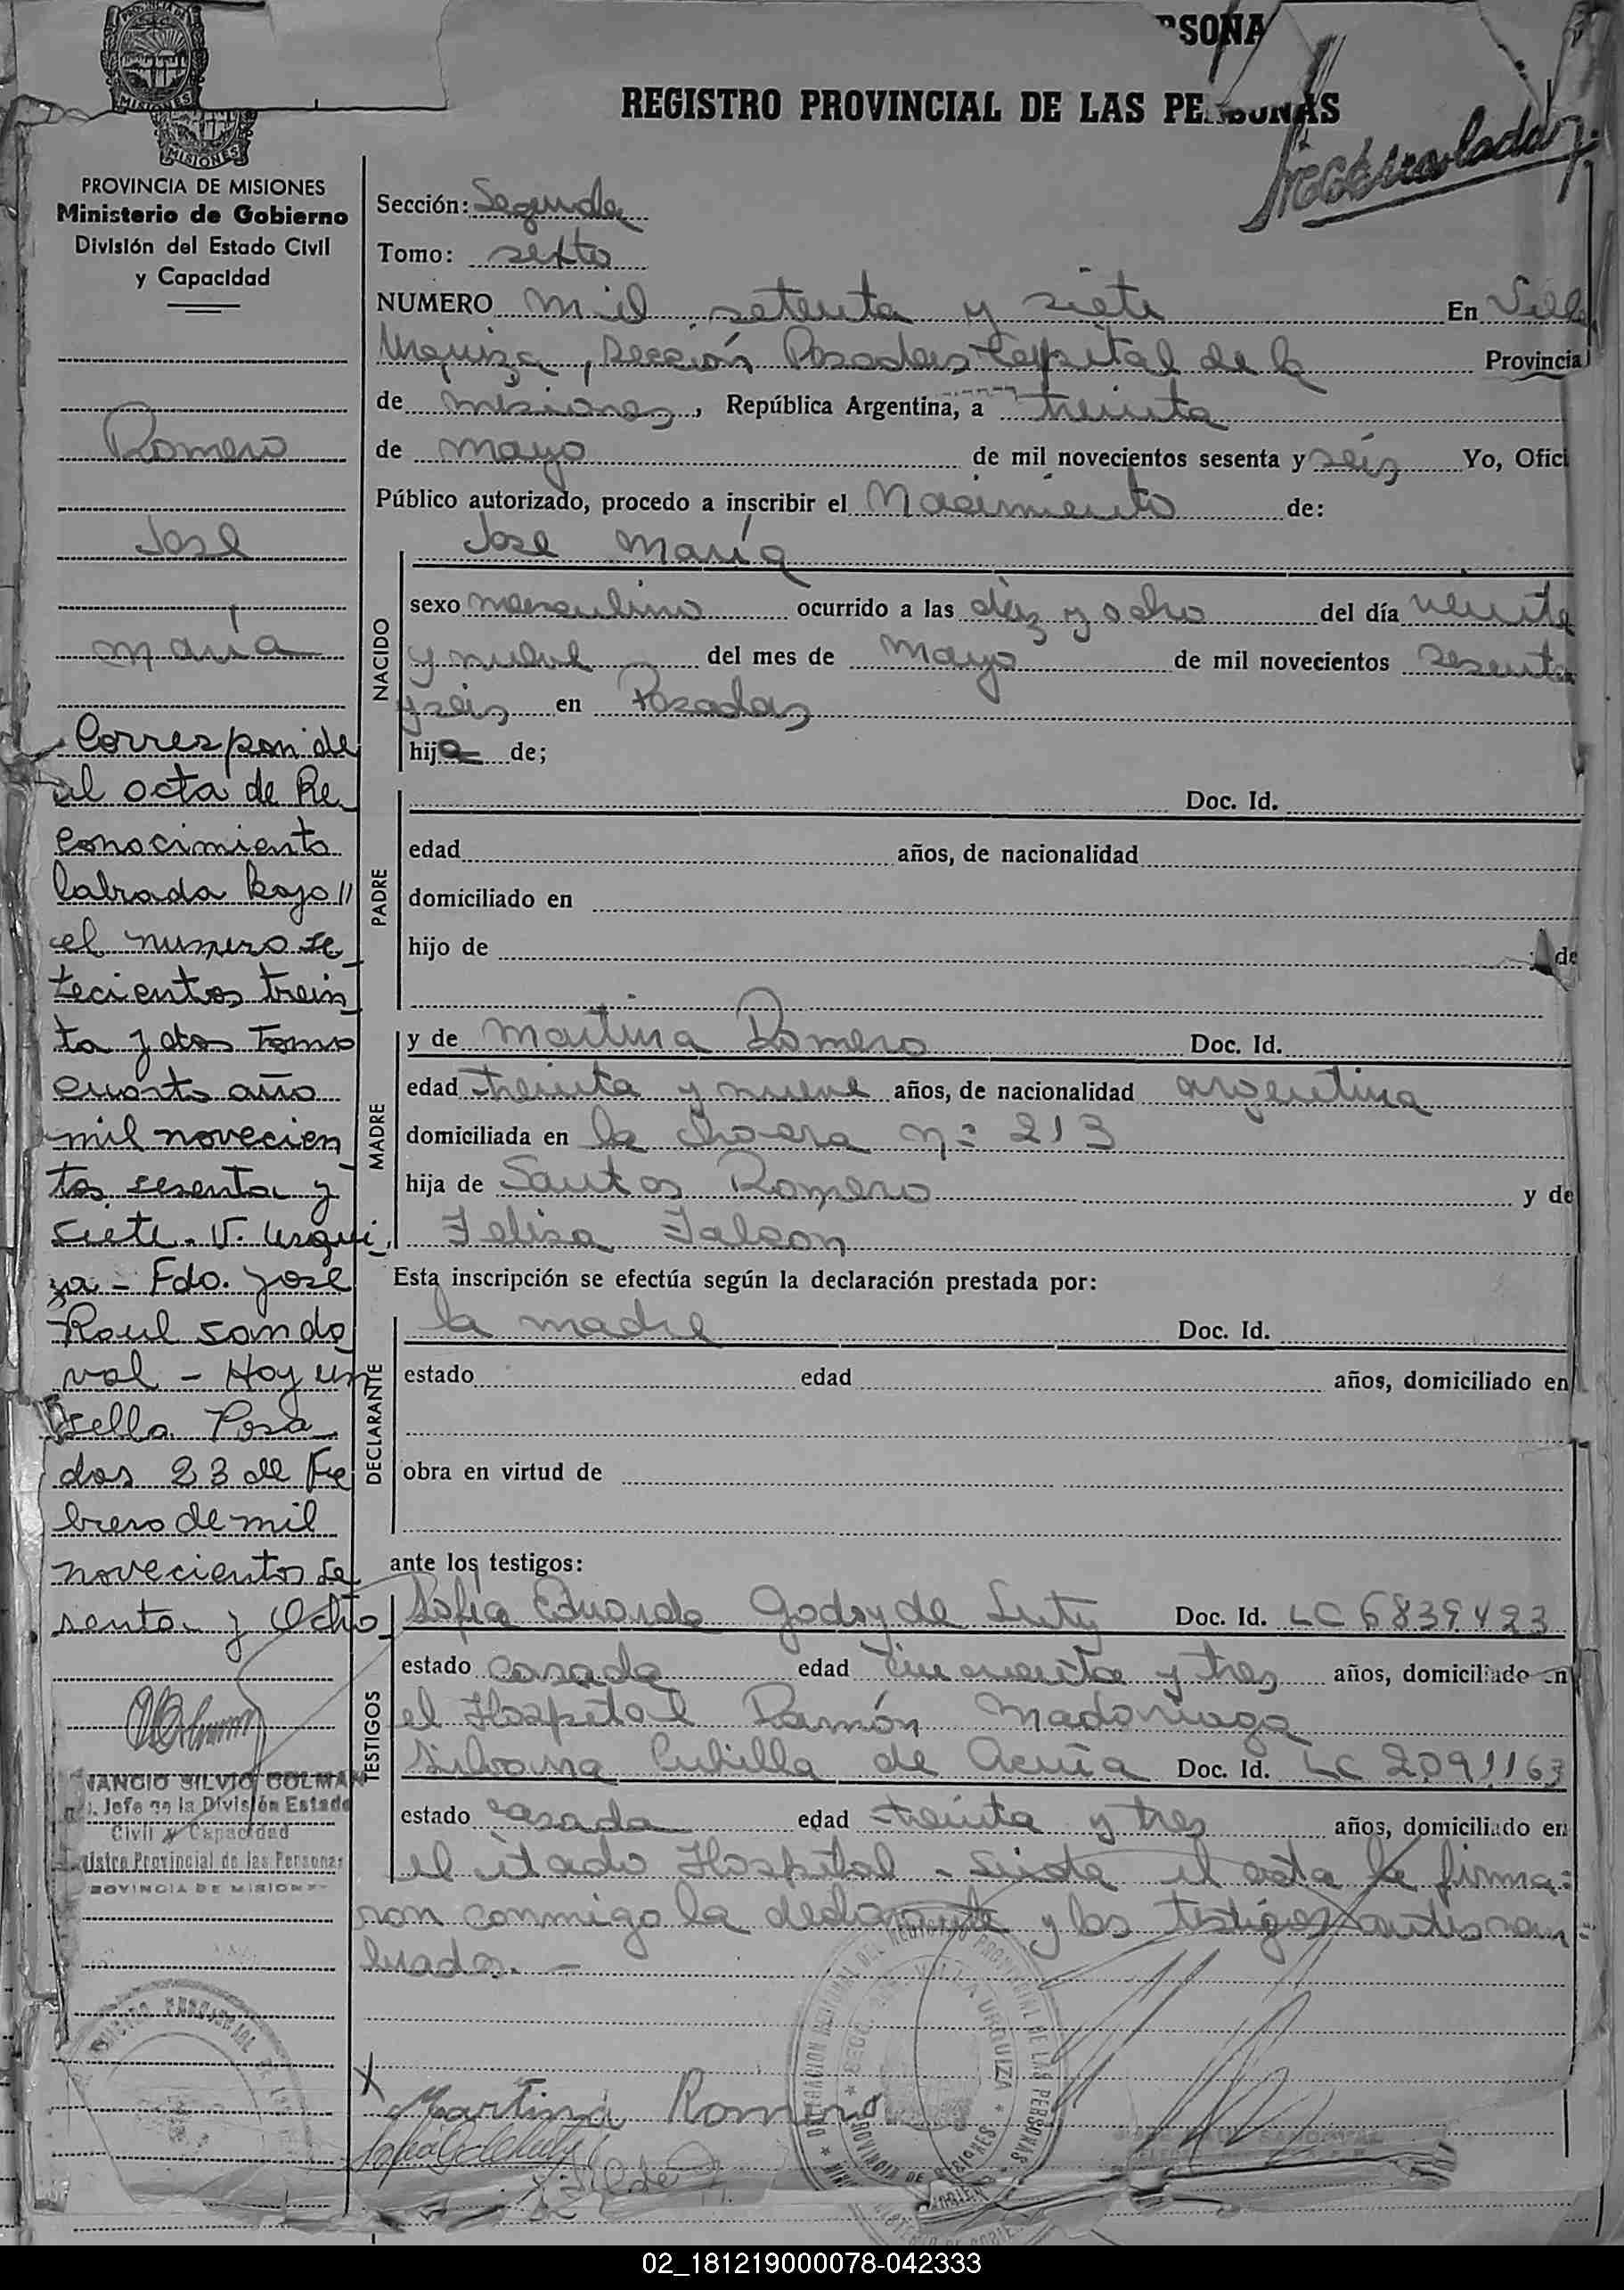 PERSONA
REGISTRO PROVINCIAL DE LAS PERSONAS
MISIONES
MISIONES
PROVINCIA DE MISIONES
Ministerio de Gobierno
División del Estado Civil
y Capacidad
Romero
Jose
maría
Corresponde
al acta de Re
conocimiento
labrada bajo //
el numero se
tecientos trein
ta y dos Tomo
cuarto año
mil novecien
tos sesenta y
siete. V. Urqui
za - Fdo. Jose
Raul Sando
val - Hoy un
sello. Posa
das 23 de Fe
brero de mil
novecientos se
senta y Ocho
VENANCIO SILVIO COLMAN
Jefe de la División Estado
Civil y Capacidad
Registro Provincial de las Personas
PROVINCIA DE MISIONES
Sección: Segunda
Tomo: sexto
NUMERO mil setenta y siete En Villa
Urquiza, Sección Posadas Capital de la Provincia
de misiones, República Argentina, a treinta
de mayo de mil novecientos sesenta y séis Yo, Ofici
Público autorizado, procedo a inscribir el Nacimiento de:
NACIDO
Jose María
sexo masculino ocurrido a las diez y ocho del día veinte
y nueve del mes de mayo de mil novecientos sesenta
y seis en Posadas
hijo de;
PADRE
Doc. Id.
edad años, de nacionalidad
domiciliado en
hijo de de
MADRE
y de Martina Romero Doc. Id.
edad treinta y nueve años, de nacionalidad argentina
domiciliada en la Chacra nº 213
hija de Santos Romero y de
Felisa Falcon
Esta inscripción se efectúa según la declaración prestada por:
DECLARANTE
la madre Doc. Id.
estado edad años, domiciliado en
obra en virtud de
ante los testigos:
TESTIGOS
Sofia Eduarda Godoy de Luty Doc. Id. LC 6839423
estado casada edad cincuenta y tres años, domiciliado en
el Hospital Ramón Madariaga
Silvana Cubilla de Acuña Doc. Id. LC 2091163
estado casada edad treinta y tres años, domiciliado en
el citado Hospital - Leida el acta la firma=
ron conmigo la declarante y los testigos
X
Martina Romero
02_181219000078-042333